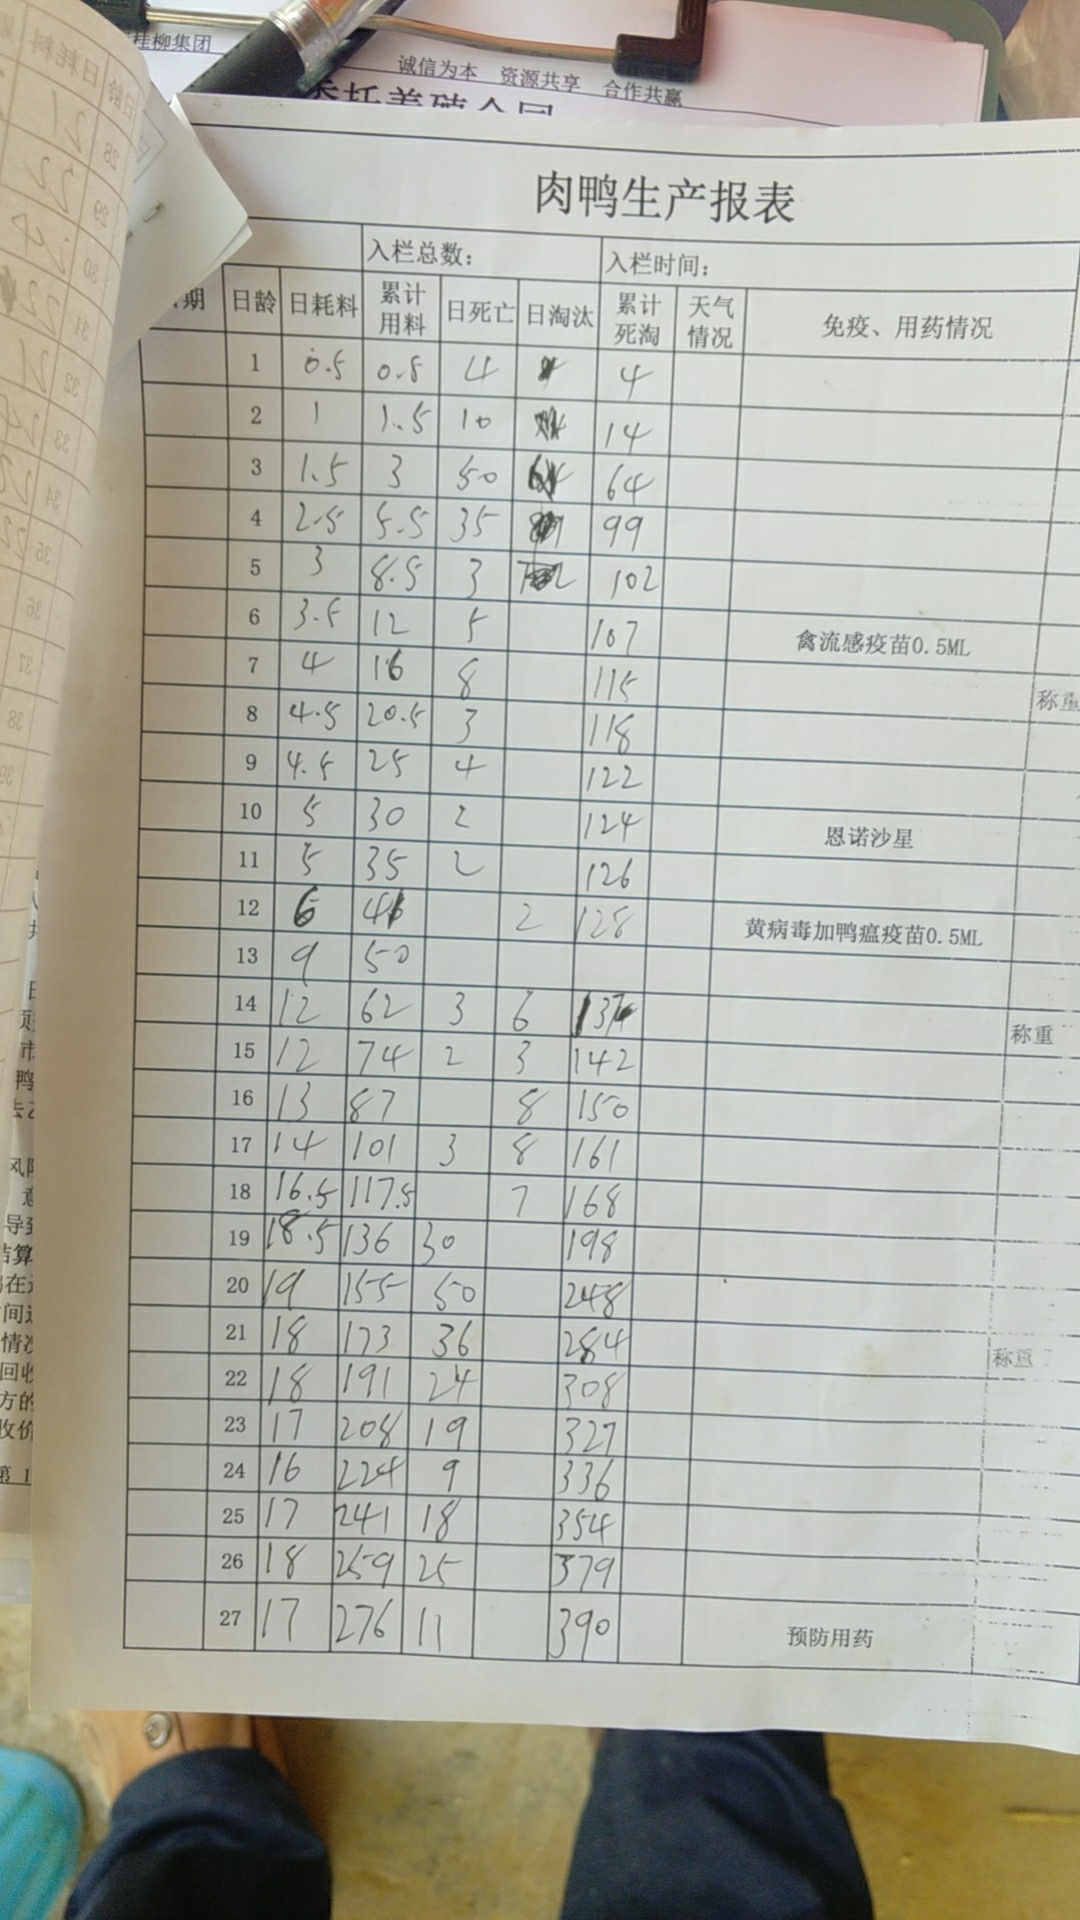 桂柳集团
诚信为本 资源共享 合作共赢
委托养殖合同
肉鸭生产报表
入栏总数： 入栏时间：
期 日龄 日耗料 累计用料 日死亡 日淘汰 累计死淘 天气情况 免疫、用药情况
1 0.5 0.8 4 4
2 1 1.5 10 14
3 1.5 3 50 64
4 2.5 5.5 35 99
5 3 8.5 3 102
6 3.5 12 5 107 禽流感疫苗0.5ML
7 4 16 8 115 称重
8 4.5 20.5 3 118
9 4.5 25 4 122
10 5 30 2 124 恩诺沙星
11 5 35 2 126
12 6 41 2 128 黄病毒加鸭瘟疫苗0.5ML
13 9 50
14 12 62 3 6 137 称重
15 12 74 2 3 142
16 13 87 8 150
17 14 101 3 8 161
18 16.5 117.5 7 168
19 18.5 136 30 198
20 19 155 50 248
21 18 173 36 284 称重
22 18 191 24 308
23 17 208 19 327
24 16 224 9 336
25 17 241 18 354
26 18 259 25 379
27 17 276 11 390 预防用药
市
鸭
风险
意
导致
结算
间
情况
回收
方的
收价
第 1